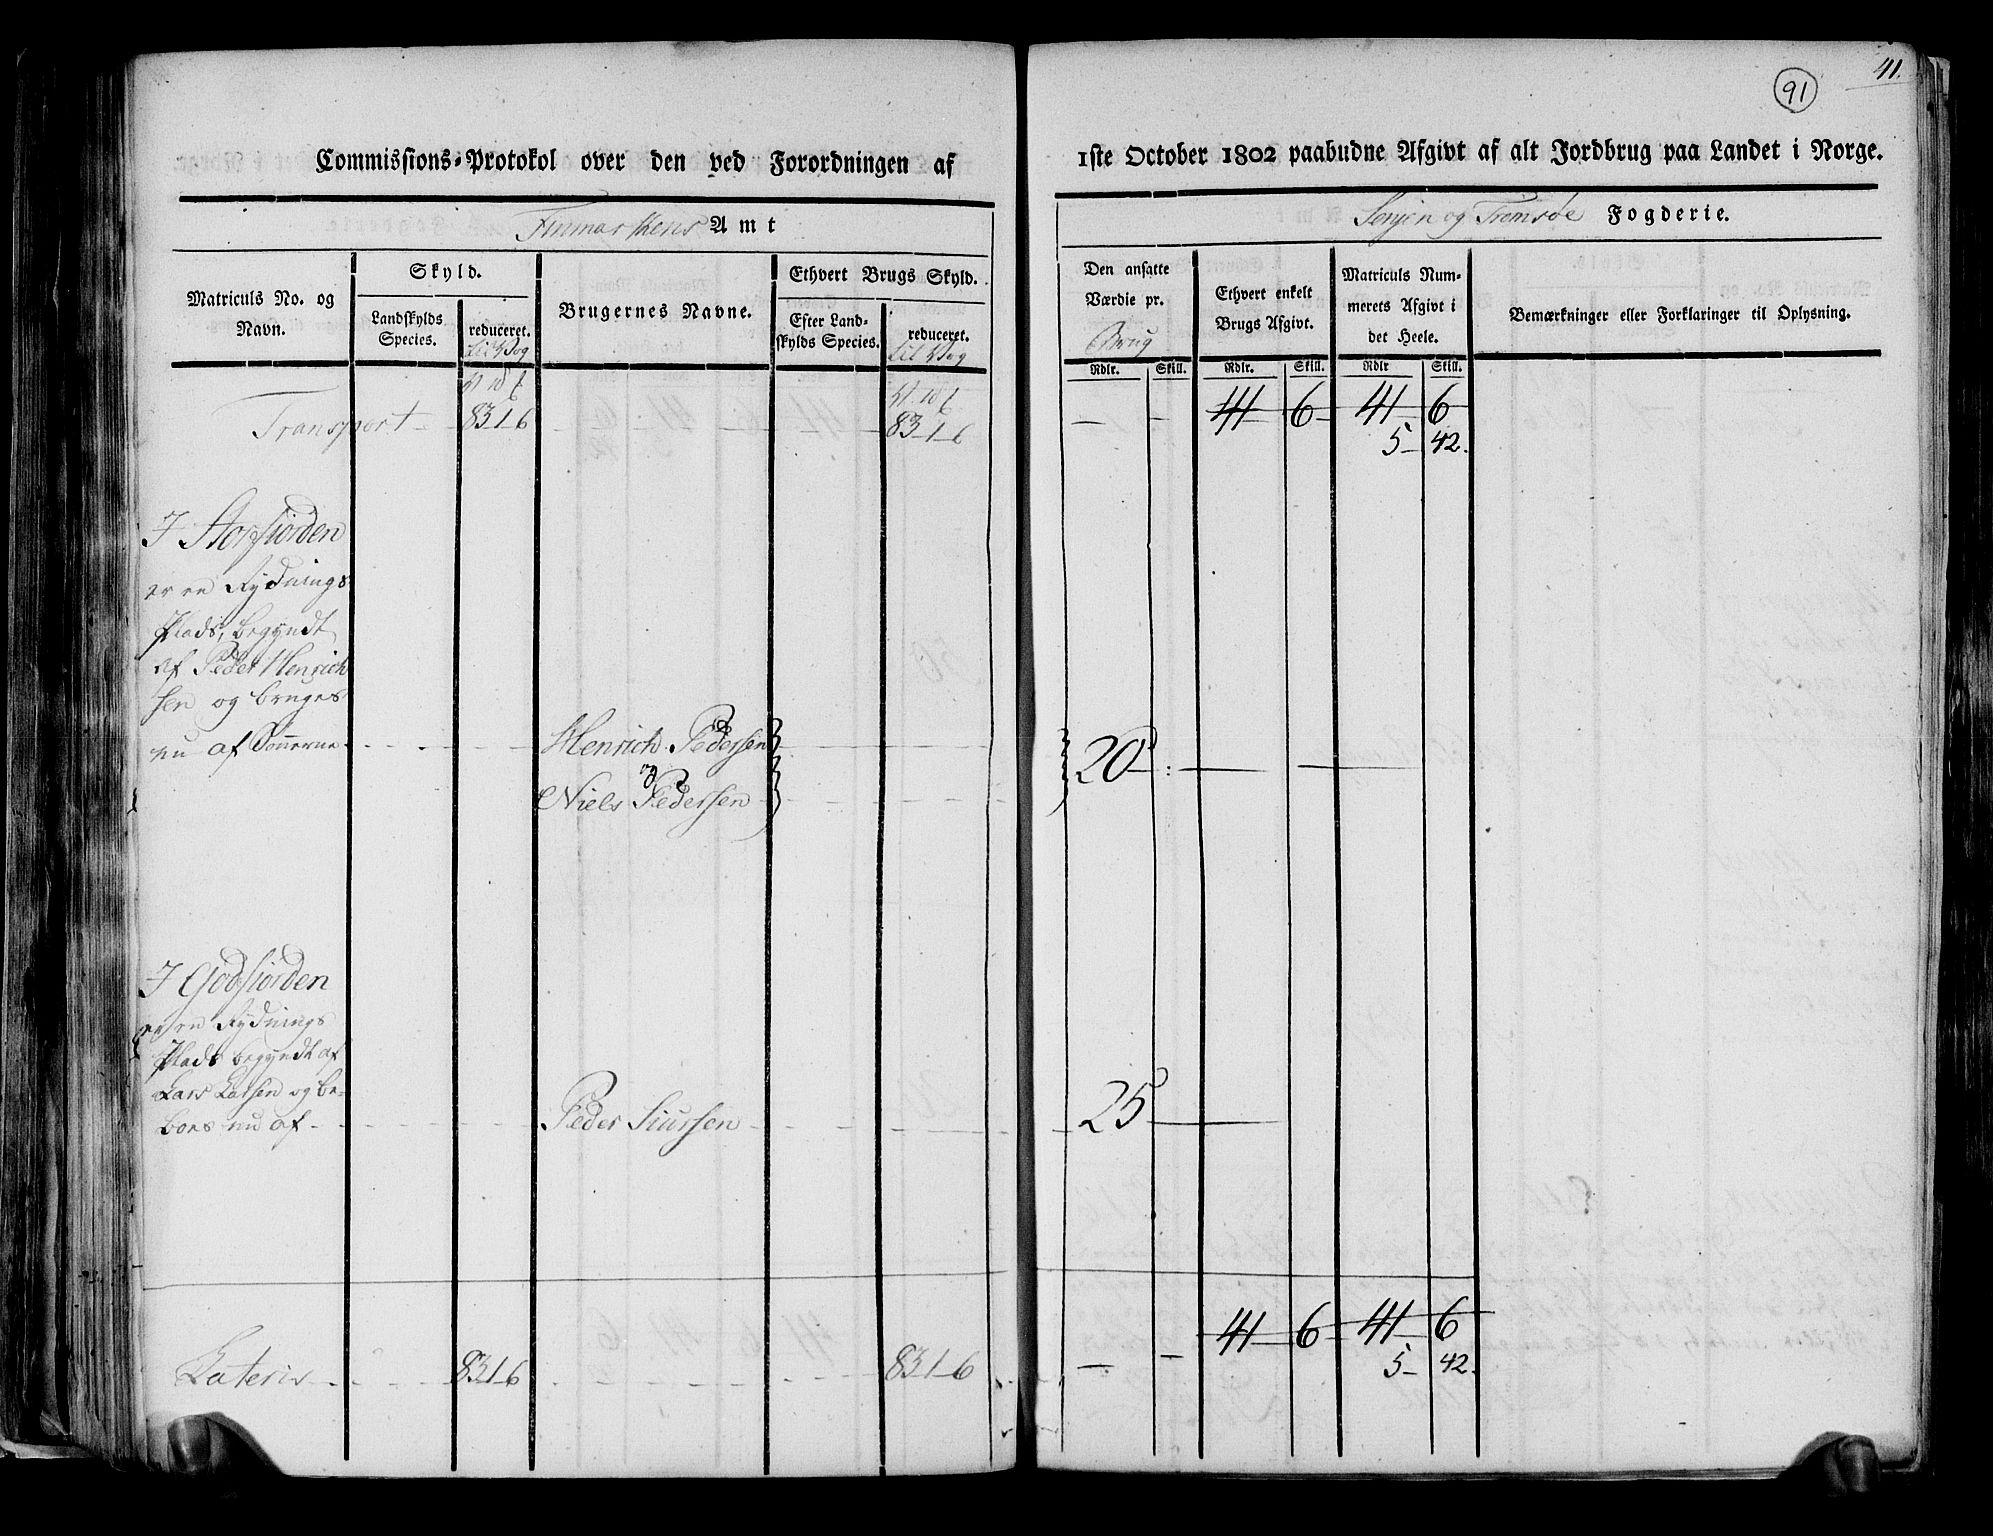 41.
91
Commissions-Protokol over den ved Forordningen af 1ste October 1802 paabudne Afgivt af alt Jordbrug paa Landet i Norge.
Finmarkens Amt
Senjen og Tromsøe Fogderie.
Matriculs No. og Navn.
Skyld.
Landskylds Species.
reduceret.
til Vog
Brugernes Navne.
Ethvert Brugs Skyld.
Efter Landskylds Species.
reduceret.
til Vog
Den ansatte Værdie pr.
Brug
Rdlr. Skill.
Ethvert enkelt Brugs Afgivt.
Rdlr. Skill.
Matriculs Nummerets Afgivt i det Heele.
Rdlr Skill.
Bemærkninger eller Forklaringer til Oplysning.
Transport 83 1 6 83 1 6 — — 41 6 41 6
5 42.
I Storfiorden
er en Rydnings
Plads, begyndt
af Peder Henrich
sen og bruges
nu af Sönnerne Henrich Pedersen 20
og
Niels Pedersen
I Godfiorden
er en Rydnings
Plads begyndt af
Lars Larsen og be-
boes nu af Peder Siursen 25
Lateris 83 1 6 83 1 6 — — 41 6 41 6
5 42.